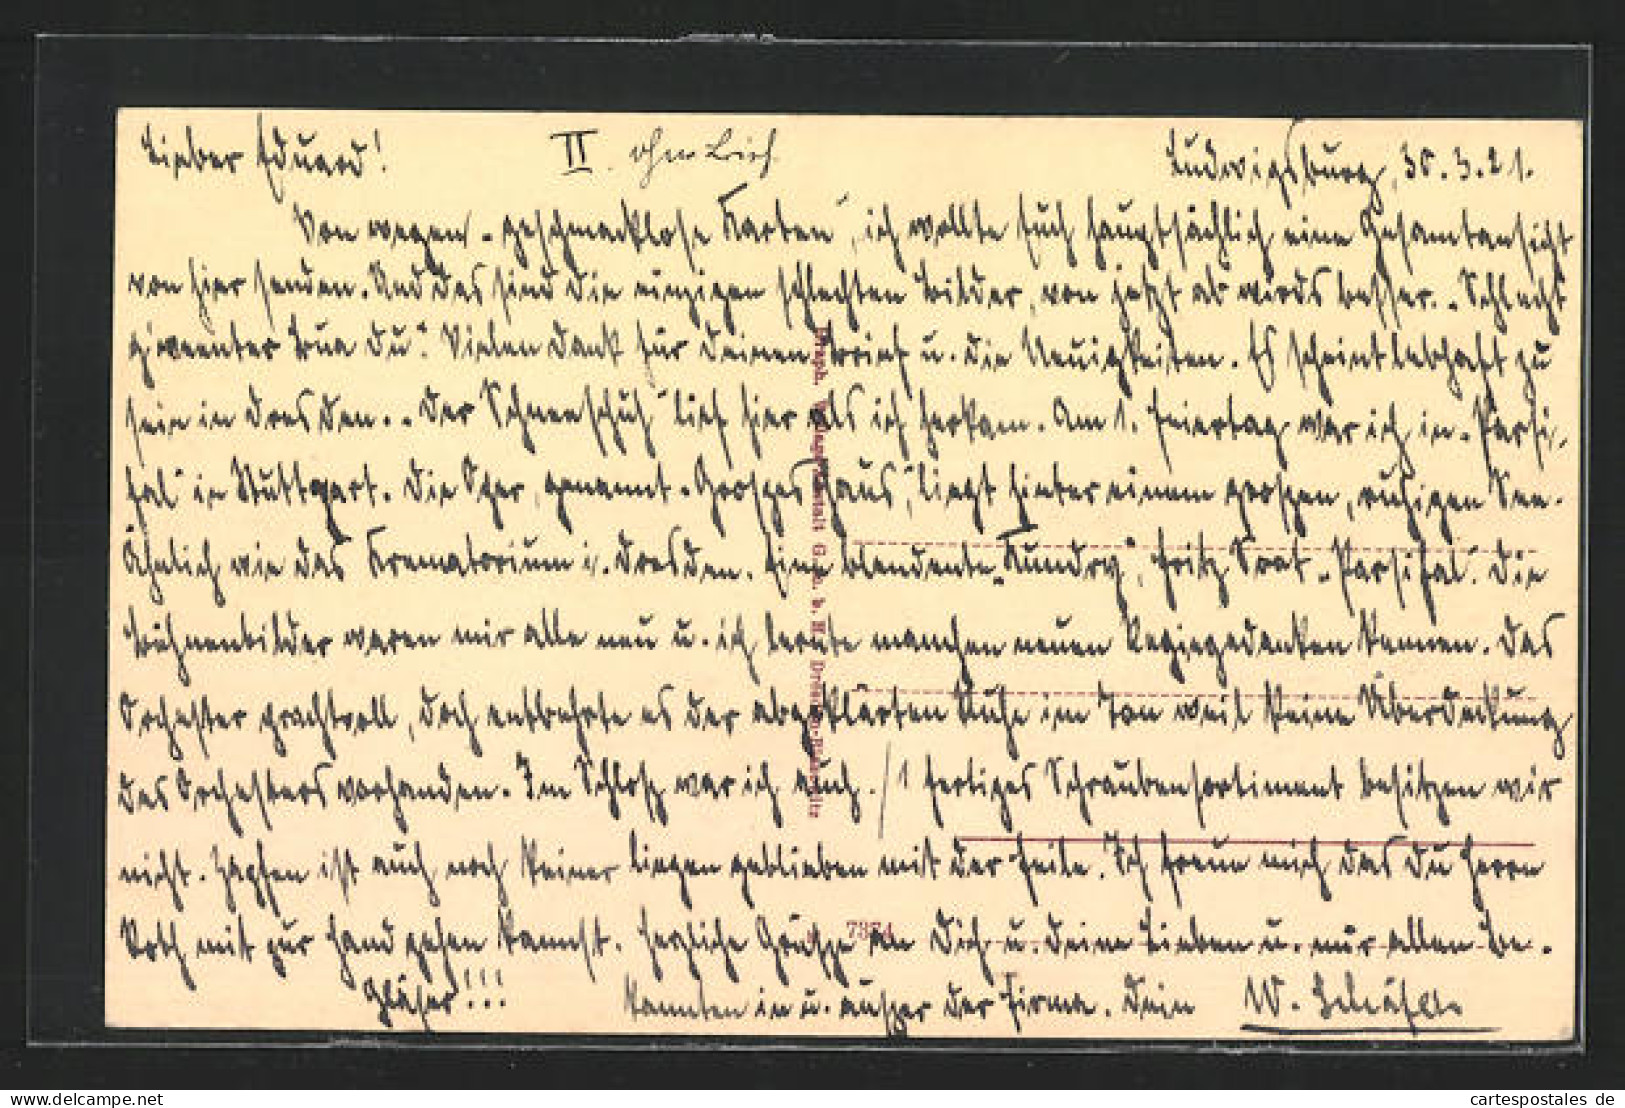 Lieber Eduard! II. Ludwigsburg, 30.3.21.
Von wegen „geschmacklose Karten“, ich wollte Euch hauptsächlich eine Gesamtansicht
von hier senden. Und das sind die einzigen schlechten Bilder, von jetzt ab wirds besser. „Schlecht
Du“. Vielen Dank für Deinen Brief u. die Neuigkeiten. Es scheint lebhaft zu
sein in Dresden. „Der Schneeschuh“ lief hier als ich herkam. Am 1. Feiertag war ich in „Parsi-
fal“ in Stuttgart. Die Oper, genannt „Groszes Haus“, liegt hinter einem groszen, ruhigen See.
Ähnlich wie das Krematorium i. Dresden. Eine blendende „Kundry“, Fritz „Parsifal“. Die
Bühnenbilder waren mir alle neu u. ich lernte manchen neuen Regiegedanken kennen. Das
Orchester prachtvoll, doch entbehrte es der abgeklärten Ruhe im Ton weil keine Überdeckung
des Orchesters vorhanden. Im Schlosz war ich auch. / 1 fertiges Schraubensortiment besitzen wir
nicht. Zapfen ist auch noch keiner liegen geblieben mit der Feile. Ich freue mich das Du Herrn
Roth mit zur Hand gehen kannst. Herzliche Grüsze an Dich u. Deine Lieben u. nur allen Be-
Gläser!!! kannten in u. auszer der Firma. Dein W.
7374
cartespostales.de